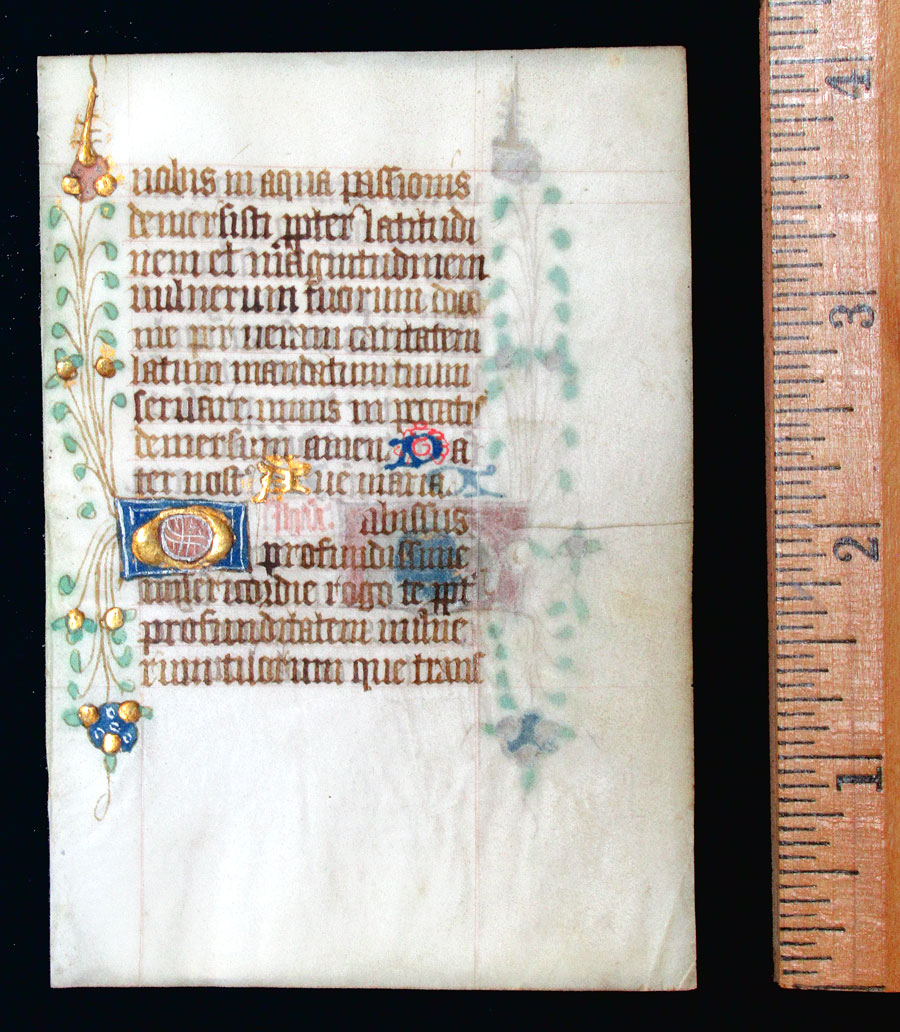 nobis in aqua passionis
demersisti ppter latitudi
nem et magnitudinem
vulnerum tuorum doce
me veram caritatem
latum mandatum tuum
servare nimis in peccatis
demersum amen. Pa
ter nost Ave maria.
Ihu. abissus
profundissime
misericordie rogo te ppt
profunditatem vulne
rum tuorum que trans
4
3
2
1